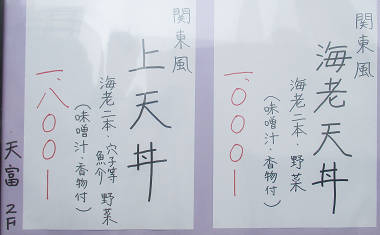 関東風
海老天丼
海老二本・野菜
(味噌汁・香物付)
一、〇〇〇ー
関東風
上天丼
海老二本・穴子等
魚介 野菜
(味噌汁・香物付)
一、八〇〇ー
天富 2F